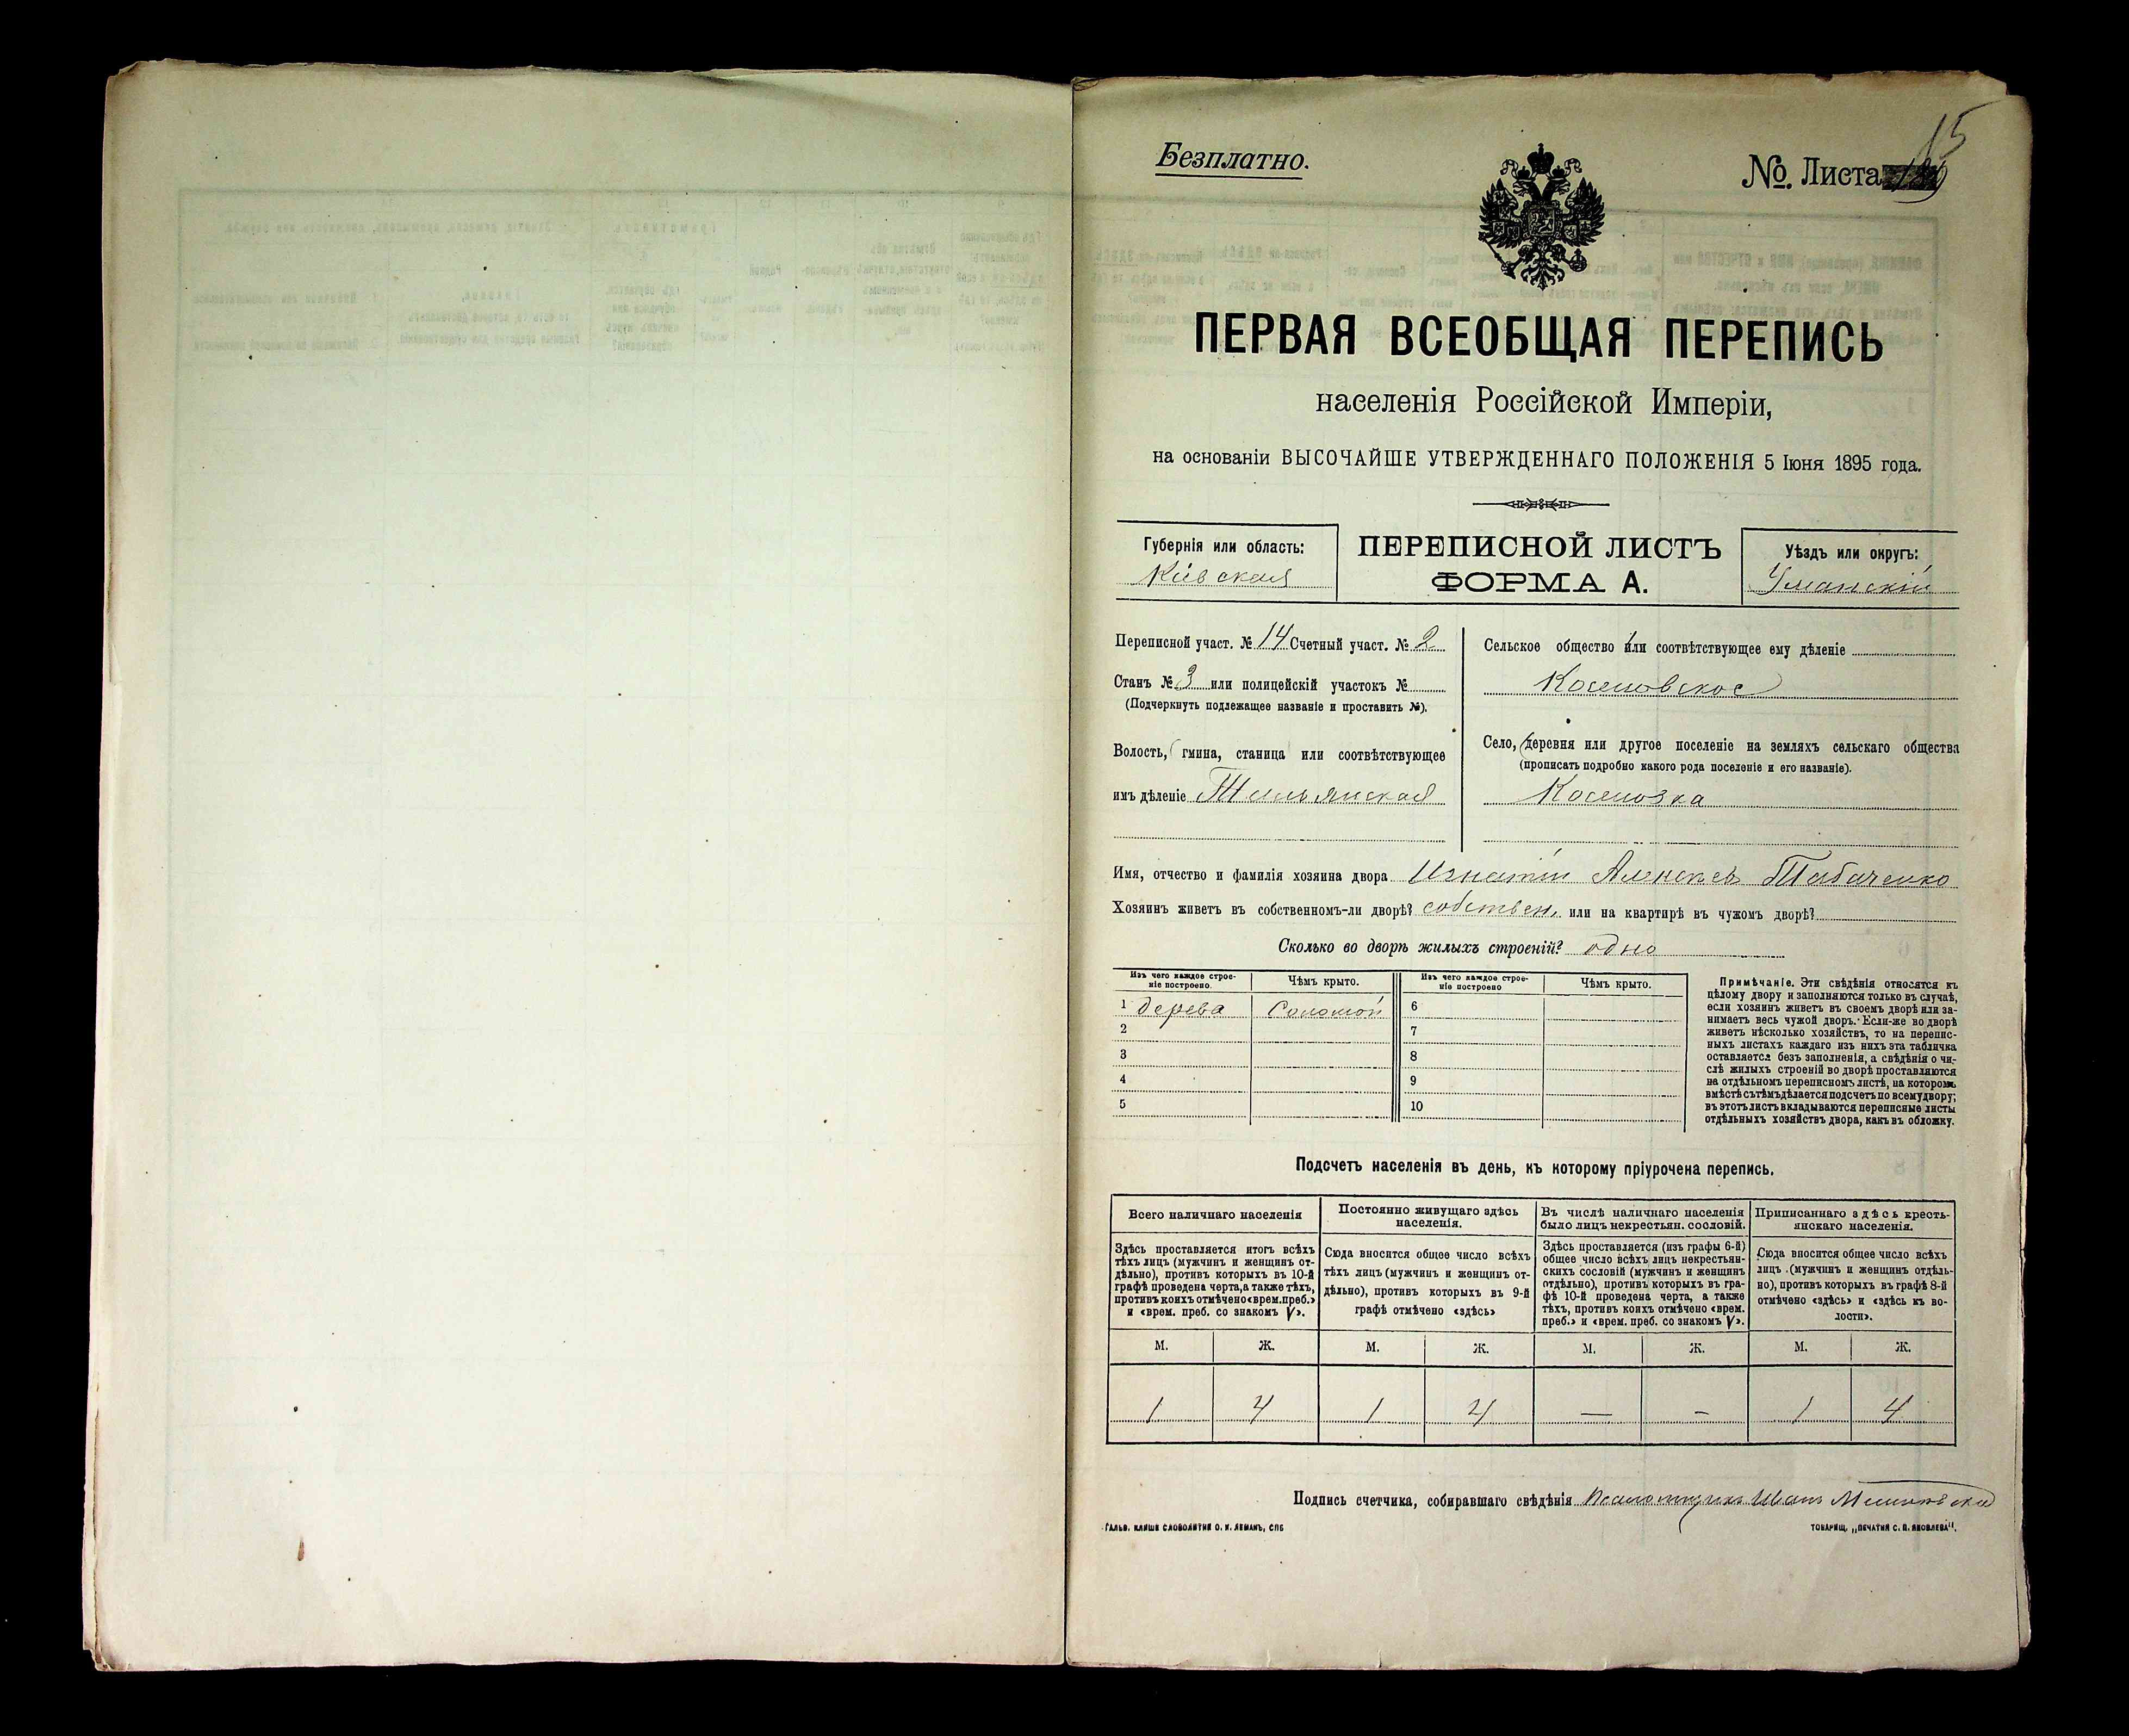 Безплатно.
№. Листа 15
ПЕРВАЯ ВСЕОБЩАЯ ПЕРЕПИСЬ
населенія Россійской Имперіи,
на основаніи ВЫСОЧАЙШЕ УТВЕРЖДЕННАГО ПОЛОЖЕНІЯ 5 Іюня 1895 года.
Губернія или область:
Кіевская
ПЕРЕПИСНОЙ ЛИСТЪ
ФОРМА А.
Уѣздъ или округъ:
Уманскій
Переписной участ. № 14 Счетный участ. № 2
Станъ № 3 или полицейскій участокъ №
(Подчеркнуть подлежащее названіе и проставить №).
Волость, гмина, станица или соотвѣтствующее
имъ дѣленіе
Сельское общество или соотвѣтствующее ему дѣленіе
Косеновское
Село, деревня или другое поселеніе на земляхъ сельскаго общества
(прописать подробно какого рода поселеніе и его названіе).
Косеновка
Имя, отчество и фамилія хозяина двора Игнатій Алексѣев Табаченко
Хозяинъ живетъ въ собственномъ-ли дворѣ? собствен. или на квартирѣ въ чужомъ дворѣ?
Сколько во дворѣ жилыхъ строеній? одно
Изъ чего каждое строе-
ніе построено.
Чѣмъ крыто.
Изъ чего каждое строе-
ніе построено
Чѣмъ крыто.
1 дерева Соломой 6
2 7
3 8
4 9
5 10
Примѣчаніе. Эти свѣдѣнія относятся къ
цѣлому двору и заполняются только въ случаѣ,
если хозяинъ живетъ въ своемъ дворѣ или за-
нимаетъ весь чужой дворъ. Если-же во дворѣ
живетъ нѣсколько хозяйствъ, то на перепис-
ныхъ листахъ каждаго изъ нихъ эта табличка
оставляется безъ заполненія, а свѣдѣнія о чи-
слѣ жилыхъ строеній во дворѣ проставляются
на отдѣльномъ переписномъ листѣ, на которомъ
вмѣстѣ съ тѣмъ дѣлается подсчетъ по всему двору;
въ этотъ листъ вкладываются переписные листы
отдѣльныхъ хозяйствъ двора, какъ въ обложку.
Подсчетъ населенія въ день, къ которому пріурочена перепись.
Всего наличнаго населенія
Здѣсь проставляется итогъ всѣхъ
тѣхъ лицъ (мужчинъ и женщинъ от-
дѣльно), противъ которыхъ въ 10-й
графѣ проведена черта, а также тѣхъ,
противъ коихъ отмѣчено «врем. преб.»
и «врем. преб. со знакомъ V».
Постоянно живущаго здѣсь
населенія.
Сюда вносится общее число всѣхъ
тѣхъ лицъ (мужчинъ и женщинъ от-
дѣльно), противъ которыхъ въ 9-й
графѣ отмѣчено «здѣсь»
Въ числѣ наличнаго населенія
было лицъ некрестьян. сословій.
Здѣсь проставляется (изъ графы 6-й)
общее число всѣхъ лицъ некрестьян-
скихъ сословій (мужчинъ и женщинъ
отдѣльно), противъ которыхъ въ гра-
фѣ 10-й проведена черта, а также
тѣхъ, противъ коихъ отмѣчено «врем.
преб.» и «врем. преб. со знакомъ V».
Приписаннаго здѣсь кресть-
янскаго населенія.
Сюда вносится общее число всѣхъ
лицъ (мужчинъ и женщинъ отдѣль-
но), противъ которыхъ въ графѣ 8-й
отмѣчено «здѣсь» и «здѣсь къ во-
лости».
М. Ж. М. Ж. М. Ж. М. Ж.
1 4 1 4 — — 1 4
Подпись счетчика, собиравшаго свѣдѣнія Псаломщикъ Иванъ
ГАЛЬВ. КЛИШЕ СЛОВОЛИТНИ О. И. ЛЕМАНЪ, СПБ
ТОВАРИЩ. „ПЕЧАТНЯ С. П. ЯКОВЛЕВА".